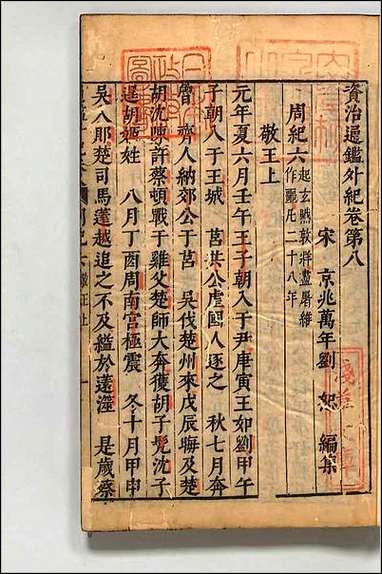 資治通鑑外紀卷第八
宋 京兆萬年劉 恕 編集
周紀六起玄黓敦牂盡屠維
作噩凡二十八年
敬王上
元年夏六月壬午王子朝入于尹庚寅王如劉甲午
子朝入于王城 莒共公虐國人逐之 秋七月奔
魯 齊人納郊公于莒 吳伐楚州來戊辰晦及楚
胡沈陳許蔡頓戰于雞父楚師大奔獲胡子髡沈子
逞胡 姓 八月丁酉周南宮極震 冬十月甲申
吳入郹楚司馬薳越追之不及縊於薳澨 是歲蔡